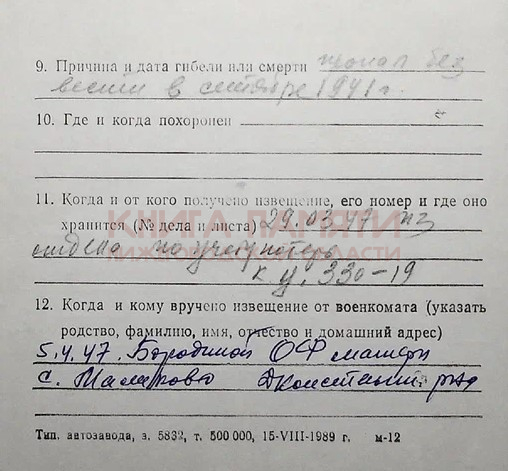 9. Причина и дата гибели или смерти пропал без
вести в сентябре 1941 г.
10. Где и когда похоронен
11. Когда и от кого получено извещение, его номер и где оно
хранится (№ дела и листа) 29.03.47 из
КНИГА ПАМЯТИ
НИЖЕГОРОДСКОЙ ОБЛАСТИ
отдела по учету потерь
к у. 330-19
12. Когда и кому вручено извещение от военкомата (указать
родство, фамилию, имя, отчество и домашний адрес)
5.4.47. Бородиной ОФ матери
с. Маликово Дконстантин. р-на
Тип. автозавода, з. 5832, т. 500 000, 15-VIII-1989 г. м-12